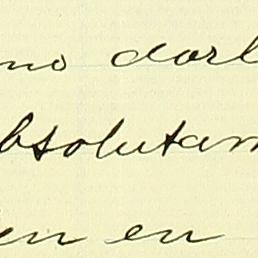 no darl
bsolutam
en en